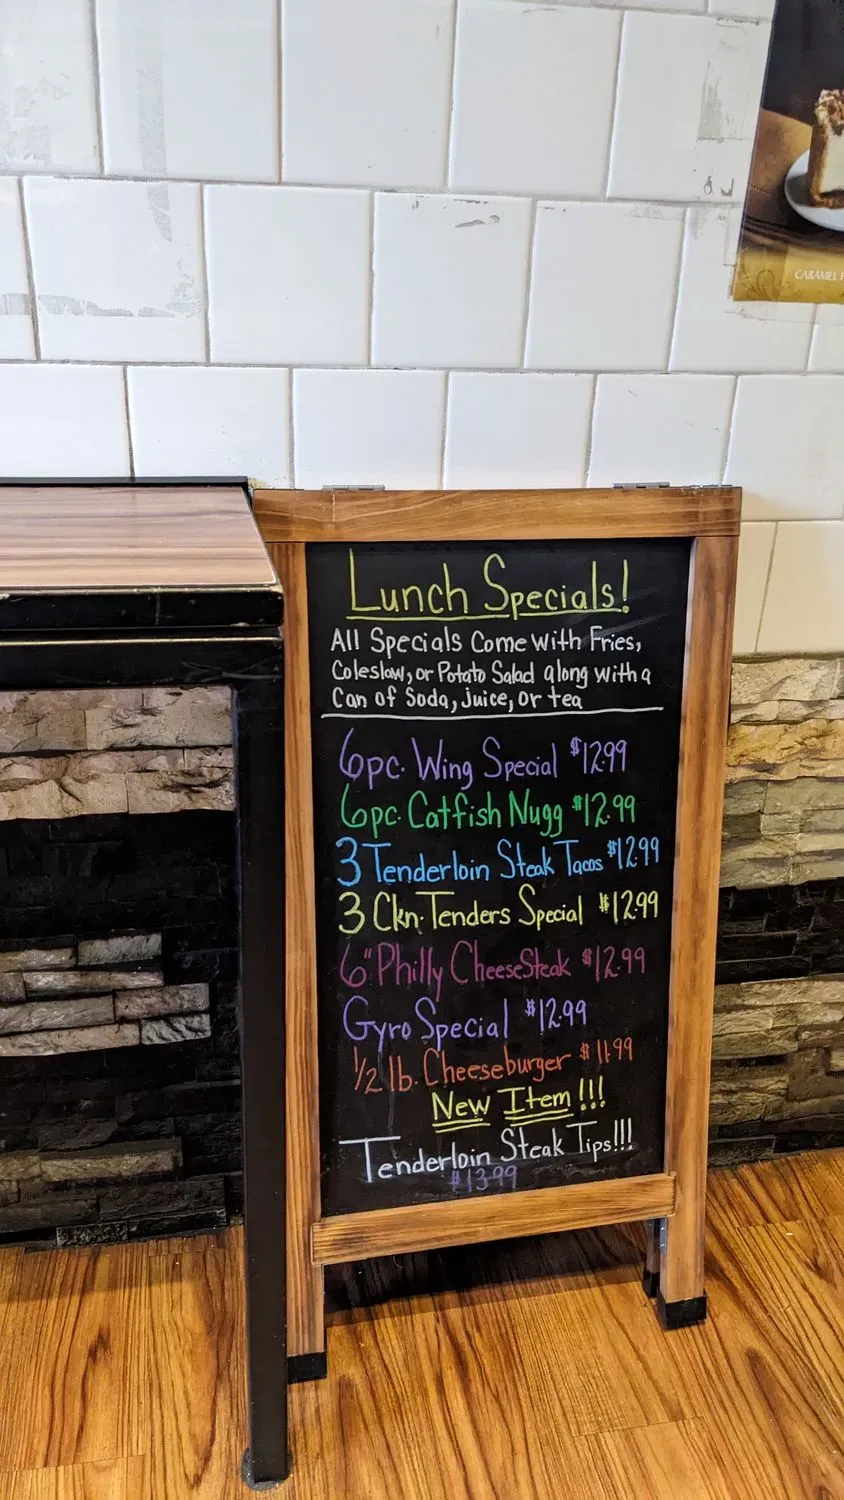 CARAMEL
Lunch Specials!
All Specials Come with Fries,
Coleslaw, or Potato Salad along with a
Can of Soda, Juice, or tea
6pc. Wing Special $12.99
6pc. Catfish Nugg $12.99
3 Tenderloin Steak Tacos $12.99
3 Ckn. Tenders Special $12.99
6" Philly CheeseSteak $12.99
Gyro Special $12.99
1/2 lb. Cheeseburger $11.99
New Item!!!
Tenderloin Steak Tips!!!
$13.99